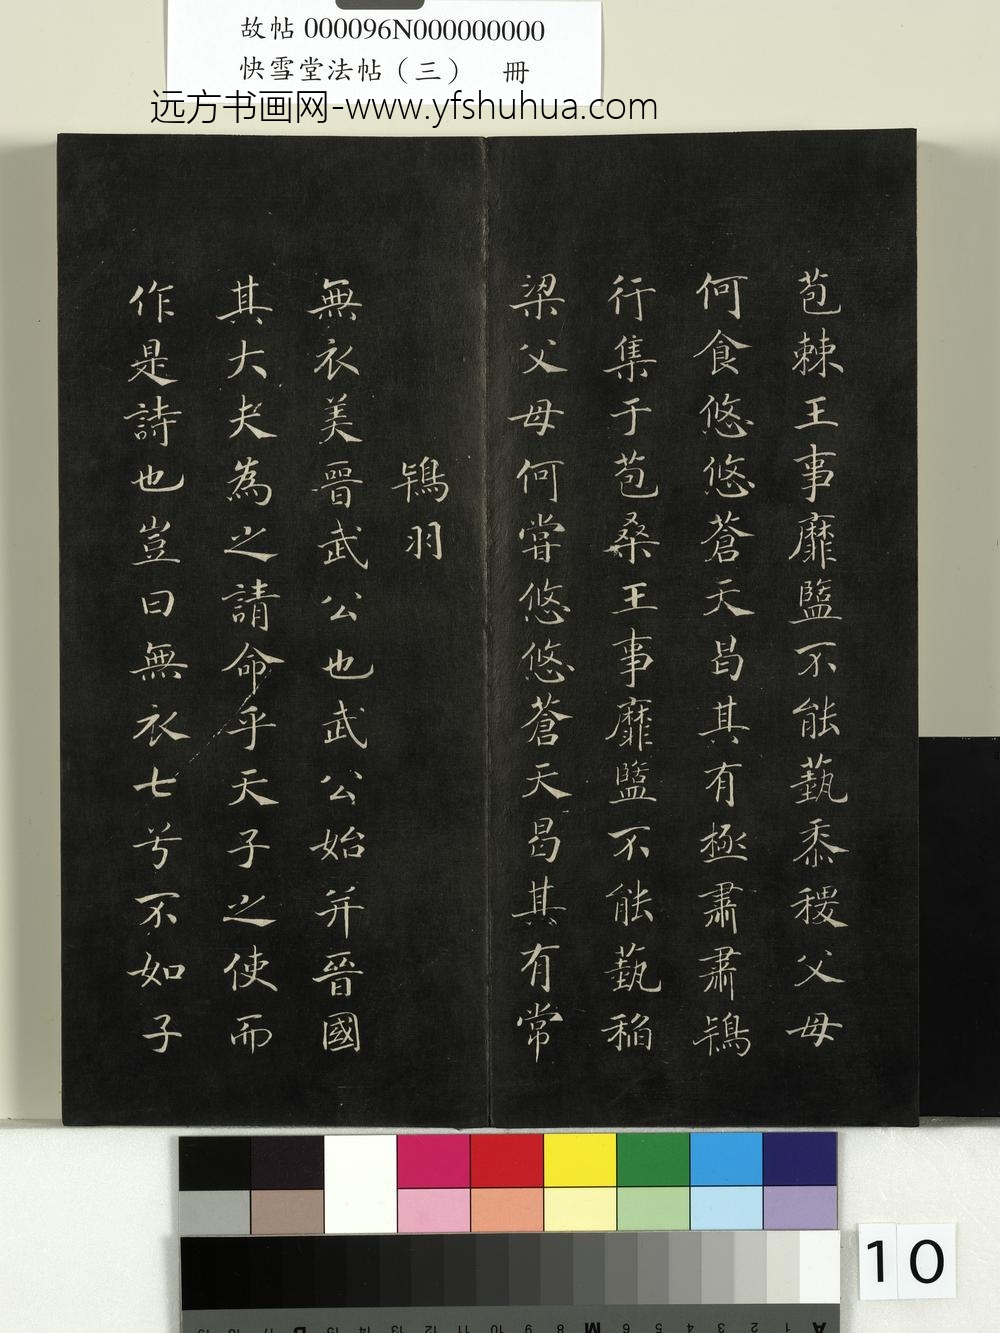 故帖 000096N000000000
快雪堂法帖（三） 冊
远方书画网-www.yfshuhua.com
苞棘王事靡盬不能蓺黍稷父母
何食悠悠蒼天曷其有極肅肅鴇
行集于苞桑王事靡盬不能蓺稻
梁父母何嘗悠悠蒼天曷其有常
鴇羽
無衣美晉武公也武公始并晉國
其大夫為之請命乎天子之使而
作是詩也豈曰無衣七兮不如子
10